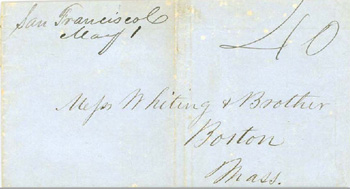 San Francisco C
May 1
40
Mess Whiting & Brother
Boston
Mass.